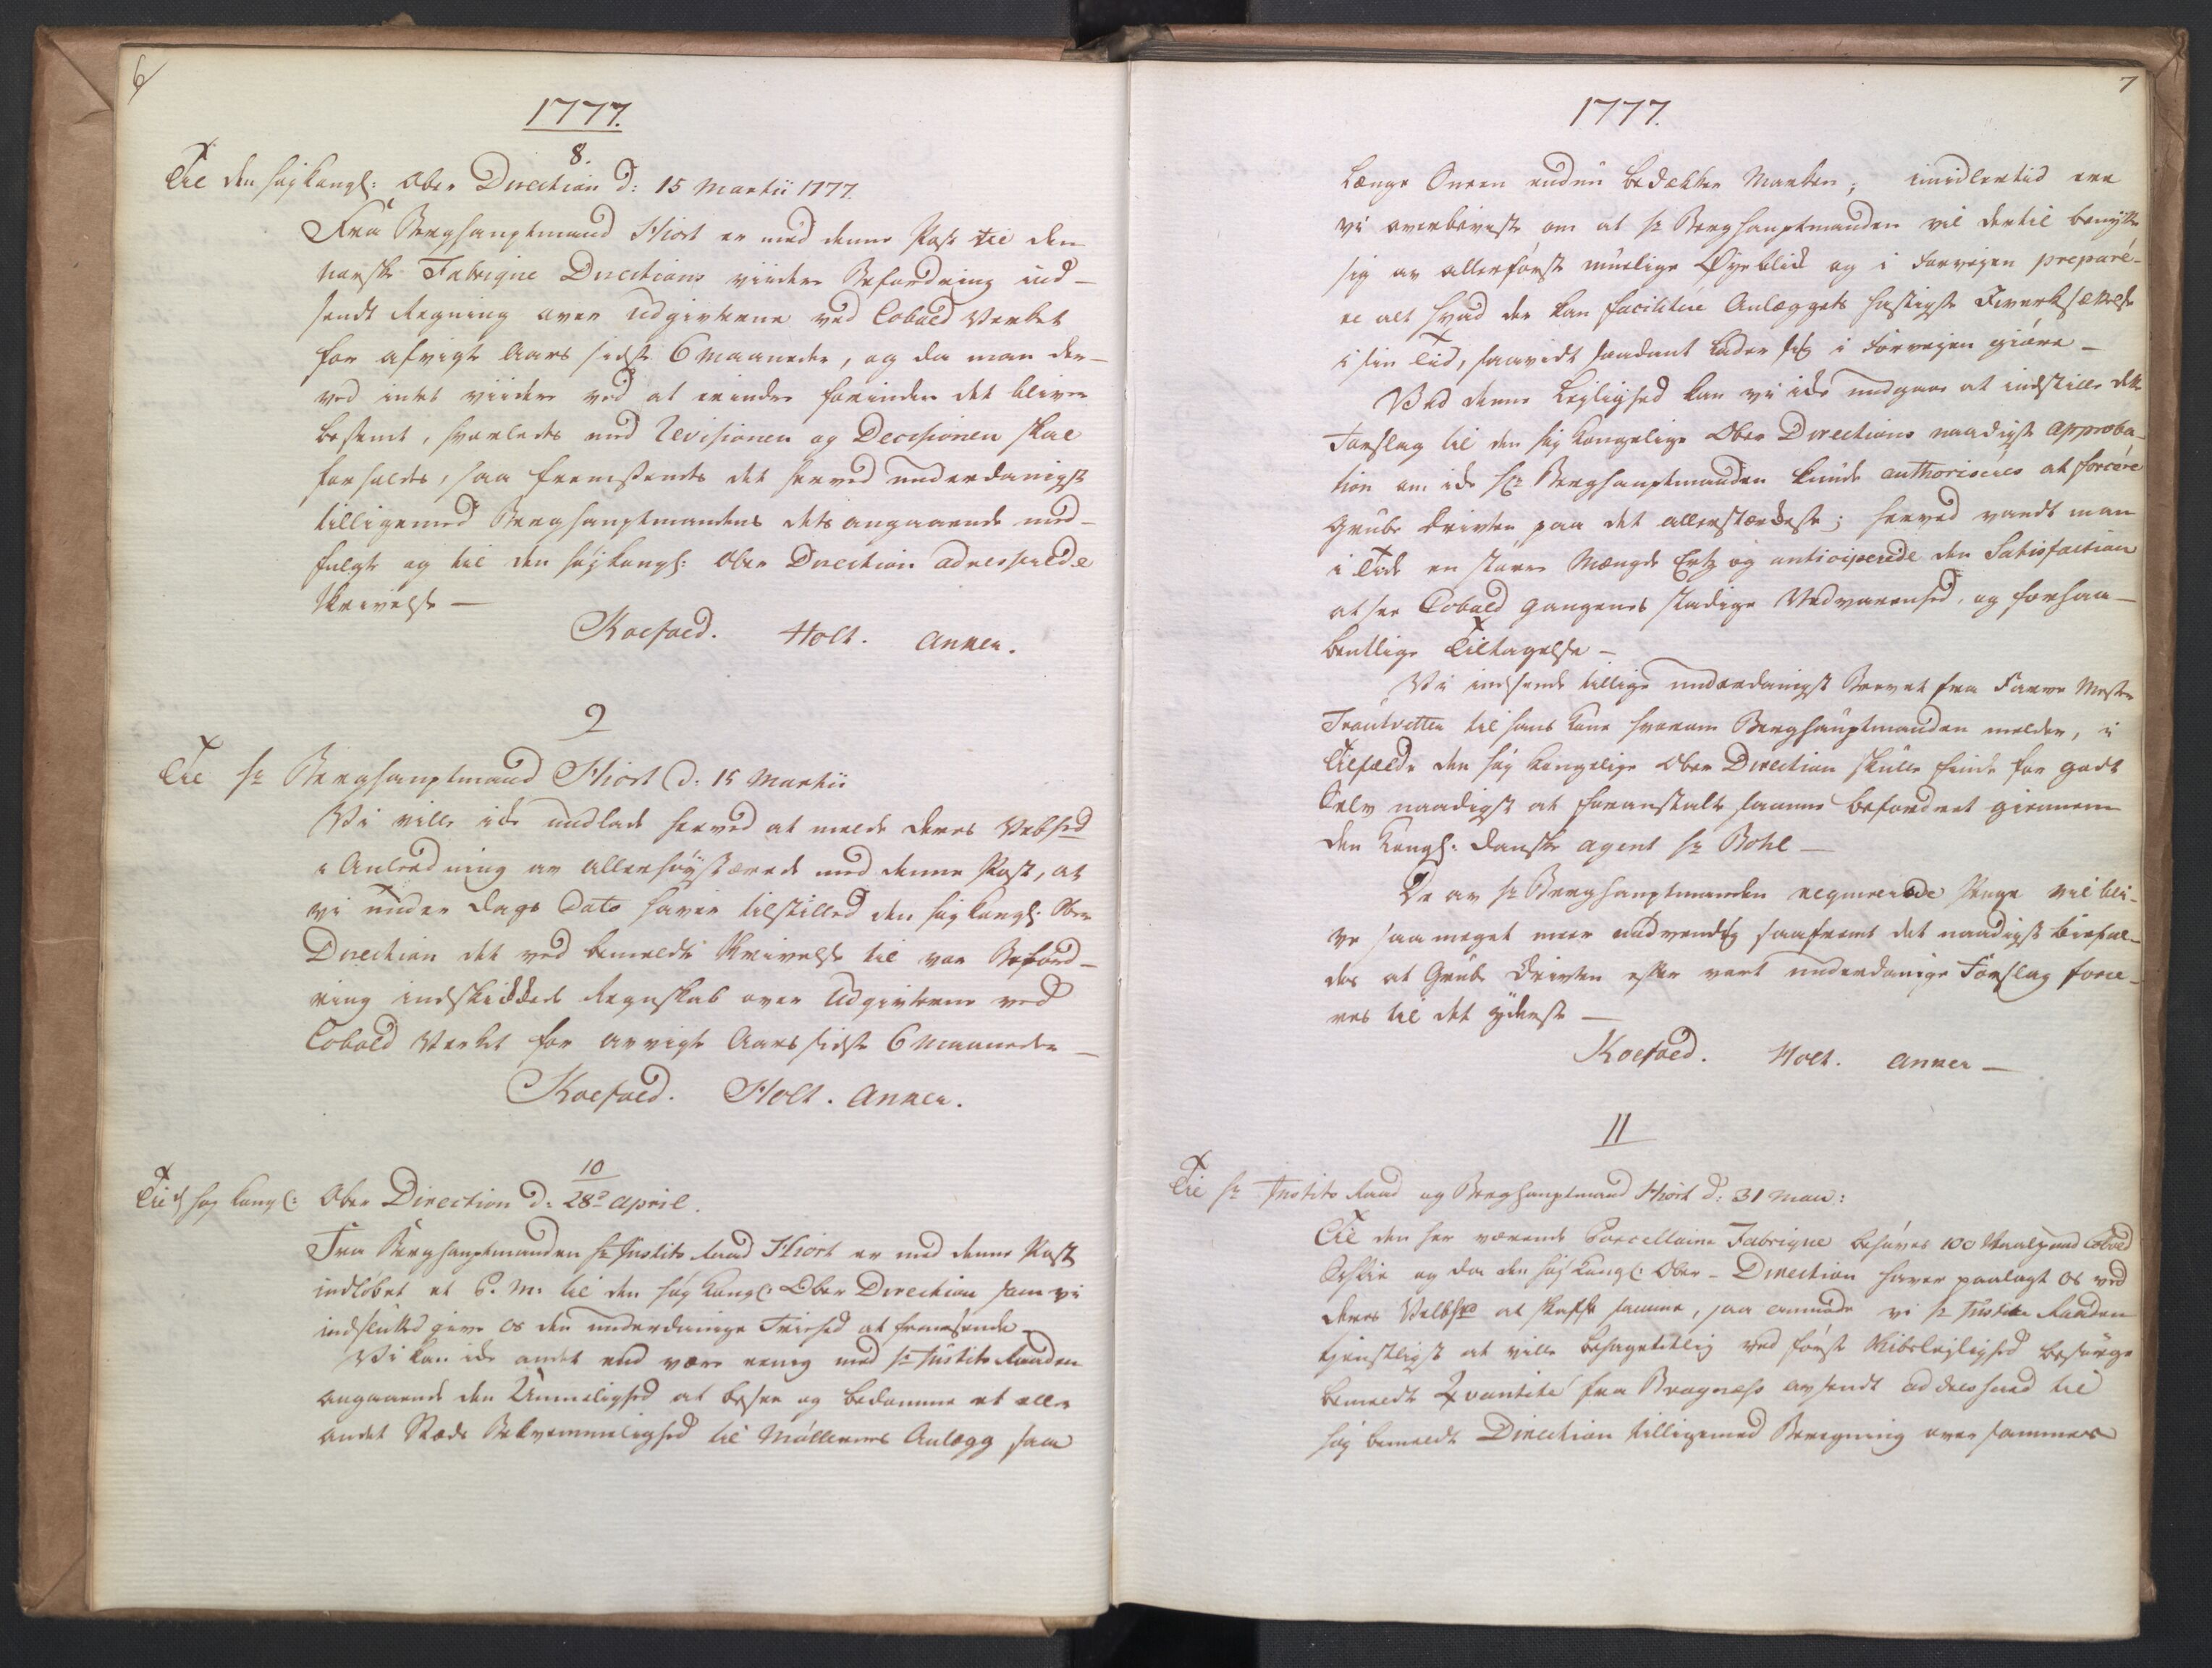 6
1777.
8.
Til den høy kongl: Ober Direction d: 15 Martii 1777.
Fra Berghauptmand Hiort er med denne Post til den
norske Fabrique Directions viidere Befordring ind-
sendt Regning over Udgivterne ved Cobold Verket
for afvigte Aars sidste 6 Maaneder, og da man der-
ved intet viidere ved at erindre forinden det bliver
bestemt, hvorledes med Revisionen og Decisionen skal
forholdes, saa fremsendes det herved underdanigst
tilligemed Berghauptmandens dets angaaende med-
fulgte og til den høy kongl: Ober Direction adresserede
Skrivelse —
Koefoed. Holt. Anker.
9
Til Hr Berghauptmand Hiort d: 15 Martii
Vi ville icke undlade herved at melde deres Velbhed
i Anledning av allerhøystærede med denne Post, at
vi under Dags Dato haver tilstilled den høy kongl: Ober
Direction det ved bemeldte Skrivelse til vor Beford-
ring indskickede Regnskab over Udgivterne ved
Cobold Verket for avvigte Aars sidste 6 Maaneder —
Koefoed. Holt. Anker.
10
Til d høy kongl: Ober Direction d: 28de April.
Fra Berghauptmanden Hr Justits Raad Hiort er med denne Post
indløbet et P. M. til den høy kongl: Ober Direction som vi
indsluttet give os den underdanige Friehed at fremsende —
Vi kan icke andet end være eenig med Hr Justits Raaden
angaaende den Umuelighed at besee og bedømme et eller
andet Stæds Bekvemmelighed til Møllernes Anlegg saa
7
1777.
længe Sneen endnu bedækker Marken; imidlertid ere
vi overbeviiste om at Hr Berghauptmanden vil dertil benytte
sig av allerførste muelige Øyeblick og i Forveyen preparé-
re alt hvad der kan facilitere Anlæggets hastigste Iverksættelse
i sin Tid, saavidt saadant lader sig i Forveyen giøre —
Ved denne Leylighed kan vi icke undgaae at indstille dette
Forslag til den høy Kongelige Ober Directions naadigste Approba-
tion om icke Hr Berghauptmanden kunde authoriseres at forcere
Grube Driften paa det allerstærkeste; herved vandt man
i Tide en større Mængde Ertz og anticiperede den Satisfaction
at see Cobold Gangenes stadige Vedvarenhed, og forhaa-
bentlige Tiltagelse —
Vi indsende tillige underdanigst Brevet fra Farve Mester
Trautvetter til hans Kone hvorom Berghauptmanden melder, i
Tilfælde den høy Kongelige Ober Direction skulle finde for godt
Selv naadigst at foranstalte samme befordret giennem
den Kongl: Danske Agent Hr Bohl —
De av Hr Berghauptmanden requirerede Penge vil bli-
ve saa meget meer nødvendig saafremt det naadigst biefal-
des at Grube Driften efter vort underdanige Forslag force-
res til det yderste —
Koefoed. Holt. Anker —
11
Til Hr Justits Raad og Berghauptmand Hiort d: 31 Maii:
Til den her værende Porcellaine Fabrique behøves 100 Skaalpund Cobold
og da den høy Kongl: Ober-Direction haver paalagt os ved
deres Velbhed at skaffe samme, saa anmode vi Hr Justits Raaden
tienstligst at ville behagentlig ved første Skibsleylighed besørge
bemeldte Qvantité fra Bragnæss avsendt addressered til
høy bemeldte Direction tilligemed Beregning over sammes